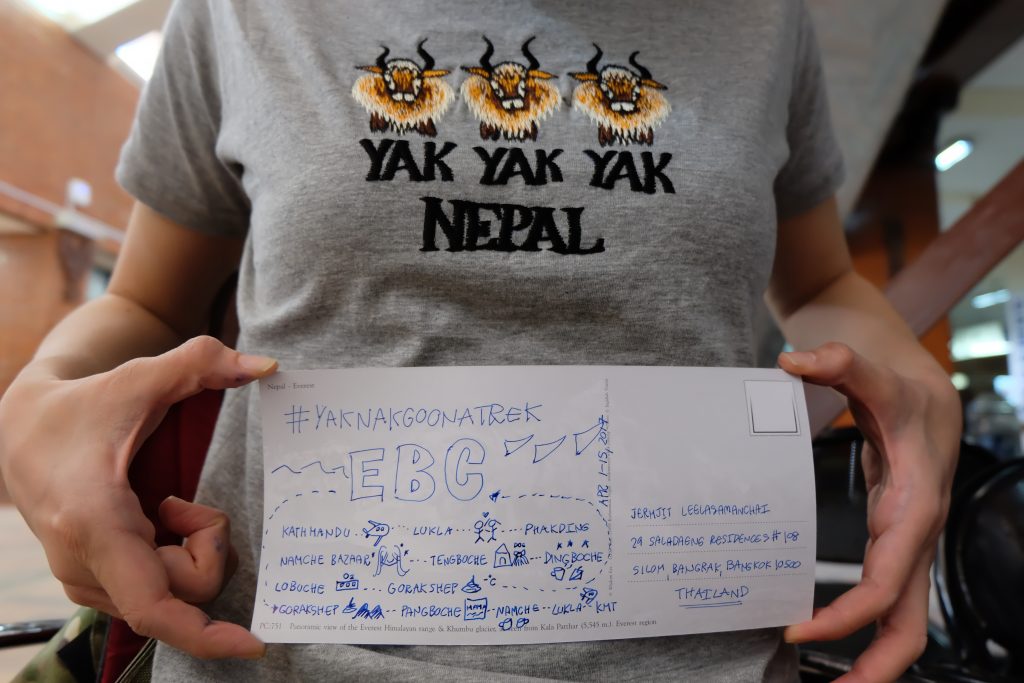 YAK YAK YAK
NEPAL
Nepal - Everest
#YAKNAKGOONATREK
EBC
KATHMANDU LUKLA PHAKDING
NAMCHE BAZAAR TENGBOCHE DINGBOCHE
LOBUCHE GORAKSHEP °C
GORAKSHEP PANGBOCHE NAMCHE LUKLA KMT
PC-751 Panoramic view of the Everest Himalayan range & Khumbu glacier, from Kala Patthar (5,545 m.) Everest region
APR 1-15, 2017
JERMJIT LEELASAMANCHAI
29 SALADAENG RESIDENCES # 108
SILOM, BANGRAK, BANGKOK 10500
THAILAND